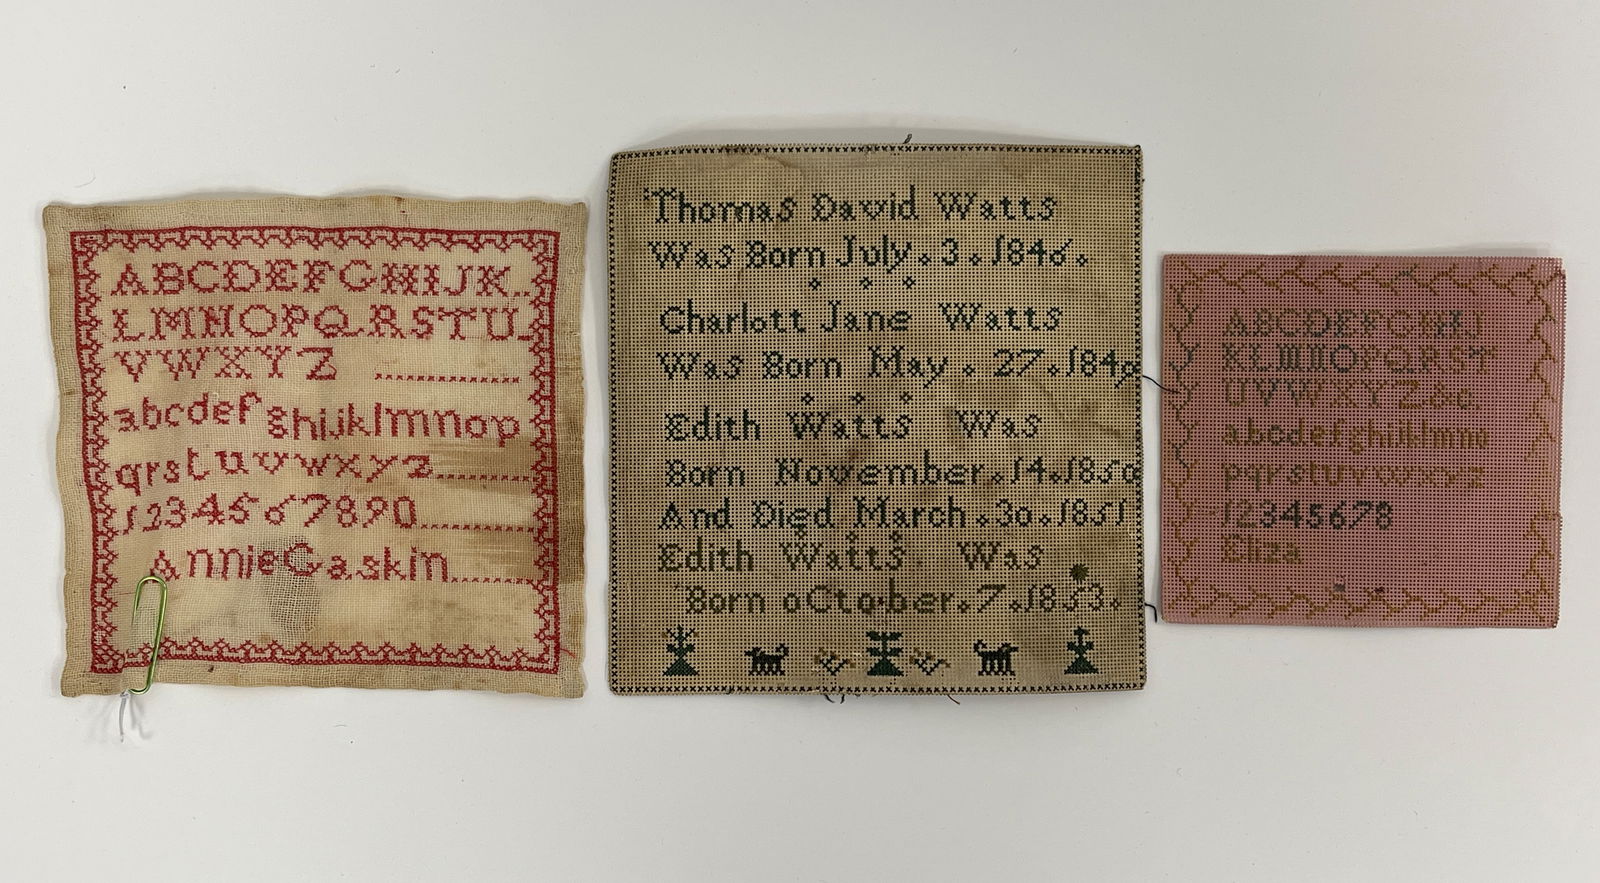 ABCDEFGHIJK..
LMNOPQRSTU.
VWXYZ ...............
abcdefghijklmnop
qrstuvwxyz..........
1234567890..........
AnnieGaskin........
Thomas David Watts
Was Born July.3.1846.
Charlott Jane Watts
Was Born May.27.1849
Edith Watts Was
Born November.14.1850
And Died March.30.1851
Edith Watts Was
Born october.7.1853.
ABCDEFGHIJ
KLMNOPQRST
UVWXYZ&c.
abcdefghijklmno
pqrstuvwxyz
12345678
Eliza